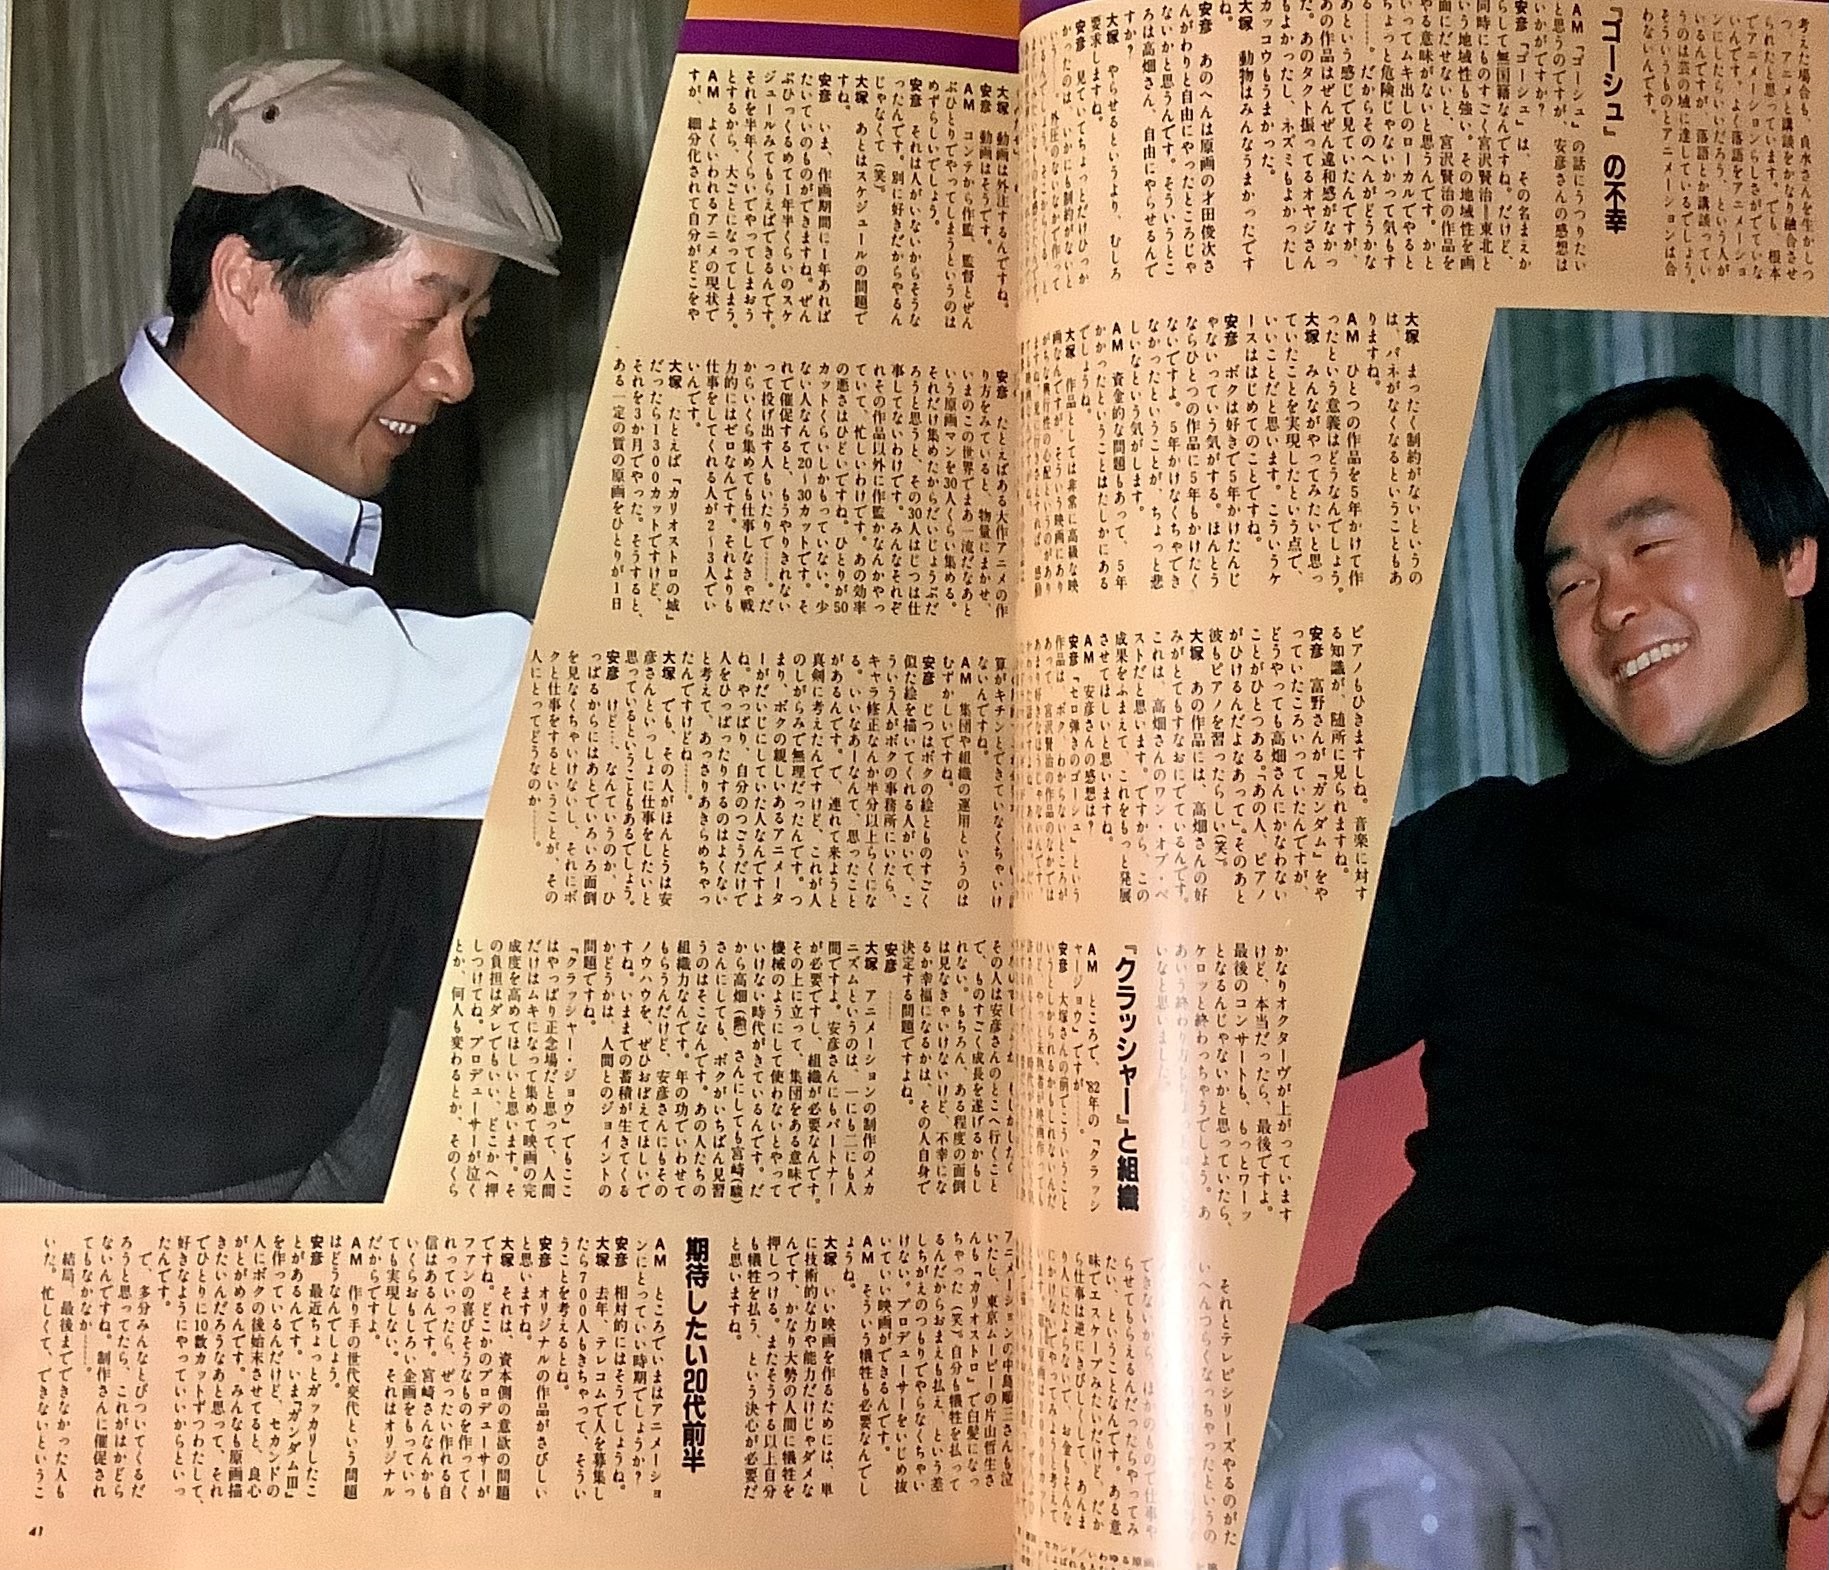 考えた場合も、良水さんを生かしつ
つ、アニメと講談をかなり融合させ
られたと思っています。でも、根本
でアニメーションらしさがでていな
いんです。よく落語をアニメーショ
ンにしたらいいだろう、という人が
いるんですが、落語とか講談ってい
うのは芸の域に達しているでしょう。
そういうものとアニメーションは合
わないんです。
『ゴーシュ』の不幸
AM 『ゴーシュ』の話にうつりたい
と思うのですが、安彦さんの感想は
いかがですか?
安彦 『ゴーシュ』は、その名まえか
らして無国籍なんですね。だけど、
同時にものすごく宮沢賢治＝東北と
いう地域性も強い。その地域性を画
面にだせないと、宮沢賢治の作品を
やる意味がないと思うんです。かと
いってムキ出しのローカルでやると
ちょっと危険じゃないかって気もす
る……。だからそのへんがどうかな
あという感じで見ていたんですが、
あの作品はぜんぜん違和感がなかっ
た。あのタクト振ってるオヤジさん
もよかったし、ネズミもよかったし
カッコウもうまかった。
大塚 動物はみんなうまかったです
ね。
安彦 あのへんは原画の才田俊次さ
んがわりと自由にやったところじゃ
ないかと思うんです。そういうとこ
ろは高畑さん、自由にやらせるんで
すか?
大塚 やらせるというより、むしろ
要求しますね。
安彦 見ていてちょっとだけひっか
かったのは、いかにも制約がないと
大塚 まったく制約がないというの
は、バネがなくなるということもあ
りますね。
AM ひとつの作品を5年かけて作
ったという意義はどうなんでしょう。
大塚 みんながやってみたいと思っ
ていたことを実現したという点で、
いいことだと思います。こういうケ
ースははじめてのことですね。
安彦 ボクは好きで5年かけたんじ
ゃないっていう気がする。ほんとう
ならひとつの作品に5年もかけたく
ないですよ。5年かけなくちゃでき
なかったということが、ちょっと悲
しいなという気がします。
AM 資金的な問題もあって、5年
かかったということはたしかにある
でしょうね。
大塚 作品としては非常に高級な映
画なんですが、そういう映画にあり
がちな興行性の心配というのがあり
ピアノもひきますしね。音楽に対す
る知識が、随所に見られますね。
安彦 富野さんが『ガンダム』をや
っていたころいっていたんですが、
どうやっても高畑さんにかなわない
ことがひとつある。「あの人、ピアノ
がひけるんだよなあって」。そのあと
彼もピアノを習ったらしい(笑)。
大塚 あの作品には、高畑さんの好
みがとてもすなおにでているんです。
これは、高畑さんのワン・オブ・ベ
ストだと思います。ですから、この
成果をふまえて、これをもっと発展
させてほしいと思いますね。
AM 安彦さんの感想は?
安彦 『セロ弾きのゴーシュ』という
作品は、ボク、わからないところが
あって、宮沢賢治の作品のなかでは
かなりオクターヴが上がっています
けど、本当だったら、最後ですよ。
最後のコンサートも、もっとワーッ
となるんじゃないかと思っていたら、
ケロッと終わっちゃうでしょう。あ
あいう終わり方も
いなと思いました。
『クラッシャー』と組織
AM ところで、'82年の『クラッシ
ャージョウ』ですが……。
安彦 大塚さんの前でこういうこと
いうとしかられるかもしれないんだ
それとテレビシリーズやるのがた
いへんつらくなっちゃったというの
できないから、ほかのもので仕事や
らせてもらえるんだったらやってみ
たい、ということなんです。ある意
味でエスケープみたいだけど、だか
ら仕事は逆にきびしくして、あんま
り人にたよらないで、お金もそんな
にかけないでやってみようと考えて
大塚 動画は外注するんですね。
安彦 動画はそうです。
AM コンテから作監、監督とぜん
ぶひとりでやってしまうというのは
めずらしいでしょう。
安彦 それは人がいないからそうな
ったんです。別に好きだからやるん
じゃなくて(笑)。
大塚 あとはスケジュールの問題で
すね。
安彦 いま、作画期間に1年あれば
たいていのものができますね。ぜん
ぶひっくるめて1年半くらいのスケ
ジュールみてもらえばできるんです。
それを半年くらいでやってしまおう
とするから、大ごとになってしまう。
AM よくいわれるアニメの現状で
すが、細分化されて自分がどこをや
安彦 たとえばある大作アニメの作
り方をみていると、物量にまかせ、
いまのこの世界でまあ一流だなあと
いう原画マンを30人くらい集める。
それだけ集めたからだいじょうぶだ
ろうと思うと、その30人はじつは仕
事してないわけです。みんなそれぞ
れその作品以外に作監かなんかやっ
ていて、忙しいわけです。あの効率
の悪さはひどいですね。ひとりが50
カットくらいしかもっていない。少
ない人なんて20〜30カットです。そ
れで催促すると、もうやりきれない
って投げ出す人もいたりで……。だ
からいくら集めても仕事しなきゃ戦
力的にはゼロなんです。それよりも
仕事をしてくれる人が2〜3人でい
いんです。
大塚 たとえば『カリオストロの城』
だったら1300カットですけど、
それを3か月でやった。そうすると、
ある一定の質の原画をひとりが1日
算がキチンとできていなくちゃいけ
ないんですね。
AM 集団や組織の運用というのは
むずかしいですね。
安彦 じつはボクの絵とものすごく
似た絵を描いてくれる人がいて、こ
ういう人がボクの事務所にいたら、
キャラ修正なんか半分以上らくにな
る。いいなあーなんて、思ったこと
があるんです。で、連れて来ようと
真剣に考えたんですけど、これが人
のしがらみで無理だったんです。つ
まり、ボクの親しいあるアニメータ
ーがだいじにしていた人なんですよ
ね。やっぱり、自分のつごうだけで
人をひっぱったりするのはよくない
と考えて、あっさりあきらめちゃっ
たんですけどね……。
大塚 でも、その人がほんとうは安
彦さんといっしょに仕事をしたいと
思っているということもあるでしょう。
安彦 けど…、なんていうのか、ひ
っぱるからにはあとでいろいろ面倒
を見なくちゃいけないし、それにボ
クと仕事をするということが、その
人にとってどうなのか……。
その人は安彦さんのとこへ行くこと
で、ものすごく成長を遂げるかもし
れない。もちろん、ある程度の面倒
は見なきゃいけないけど、不幸にな
るか幸福になるかは、その人自身で
決定する問題ですよね。
安彦 ……。
大塚 アニメーションの制作のメカ
ニズムというのは、一にも二にも人
間ですよ。安彦さんにもパートナー
が必要ですし、組織が必要なんです。
その上に立って、集団をある意味で
機械のようにして使わないとやって
いけない時代がきているんです。だ
から高畑(勲)さんにしても宮崎(駿)
さんにしても、ボクがいちばん見習
うのはそこなんです。あの人たちの
組織力なんです。年の功でいわせて
もらうんだけど、安彦さんにもその
ノウハウを、ぜひおぼえてほしいで
すね。いままでの蓄積が生きてくる
かどうかは、人間とのジョイントの
問題ですね。
『クラッシャー・ジョウ』でもここ
はやっぱり正念場だと思って、人間
だけはムキになって集めて映画の完
成度を高めてほしいと思います。そ
の負担はダレでもいい、どこかへ押
しつけてね。プロデューサーが泣く
とか、何人も変わるとか、そのくら
アニメーションの中島順三さんも泣
いたし、東京ムービーの片山哲生さ
んも『カリオストロ』で白髪になっ
ちゃった(笑)。自分も犠牲を払って
るんだからおまえも払え、という差
しちがえのつもりでやらなくちゃい
けない。プロデューサーをいじめ抜
いていい映画ができるんです。
AM そういう犠牲も必要なんでし
ょうね。
大塚 いい映画を作るためには、単
に技術的な力や能力だけじゃダメな
んです、かなり大勢の人間に犠牲を
押しつける。またそうする以上自分
も犠牲を払う、という決心が必要だ
と思いますね。
期待したい20代前半
AM ところでいまはアニメーショ
ンにとっていい時期でしょうか?
安彦 相対的にはそうでしょうね。
大塚 去年、テレコムで人を募集し
たら700人もきちゃって、そうい
うことを考えるとね。
安彦 オリジナルの作品がさびしい
と思いますね。
大塚 それは、資本側の意欲の問題
ですね。どこかのプロデューサーが
ファンの喜びそうなものを作ってく
れっていったら、ぜったい作れる自
信はあるんです。宮崎さんなんかも
いくらおもしろい企画をもっていっ
ても実現しない。それはオリジナル
だからですよ。
AM 作り手の世代交代という問題
はどうなんでしょう。
安彦 最近ちょっとガッカリしたこ
とがあるんです。いま『ガンダムⅢ』
を作っているんだけど、セカンドの
人にボクの後始末させてると、良心
がとがめるんです。みんなも原画描
きたいんだろうなあと思って、それ
でひとりに10数カットずつわたして、
好きなようにやっていいからといっ
たんです。
で、多分みんなとびついてくるだ
ろうと思ってたら、これがはかどら
ないんですね。制作さんに催促され
てもなかなか……。
結局、最後までできなかった人も
いた。忙しくて、できないというこ
41